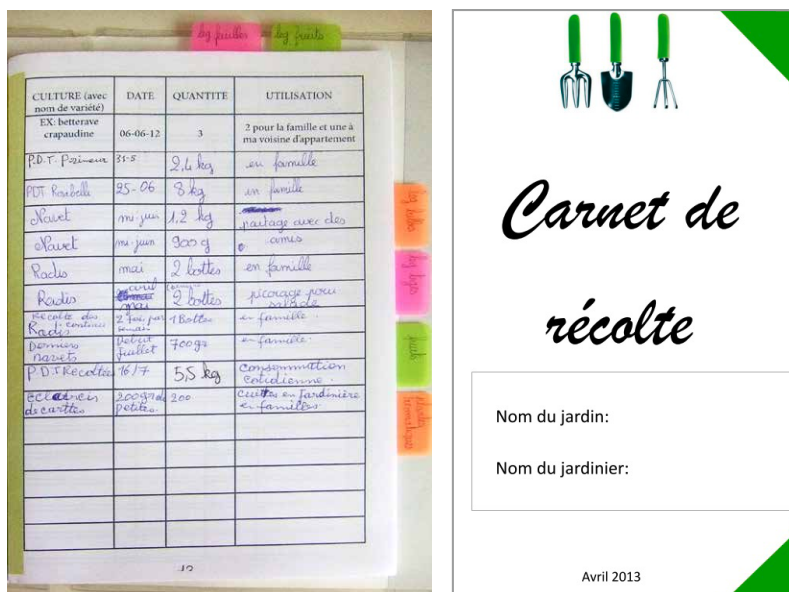 lég feuilles
lég fruits
CULTURE (avec nom de variété) DATE QUANTITE UTILISATION
EX: betterave crapaudine 06-06-12 3 2 pour la famille et une à ma voisine d'appartement
P.D.T. Primeur 31-5 2,4 kg en famille
PDT Rosbelle 25-06 8 kg en famille
Navet mi-juin 1,2 kg partage avec des
Navet mi-juin 900 g amis
Radis mai 2 bottes en famille
Radis avril mai 2 bottes picorage pour salade
Récolte des Radis continue 2 fois par semain 1 Bottes en famille
Derniers navets Début Juillet 700gr en famille.
P.D.T Recoltées 16/7 5,5 kg consommation cotidienne.
Eclaircis de carottes 200gr de petites. 200 cuittes en Jardinière en familles.
fruits
plantes aromatiques
Carnet de
récolte
Nom du jardin:
Nom du jardinier:
Avril 2013